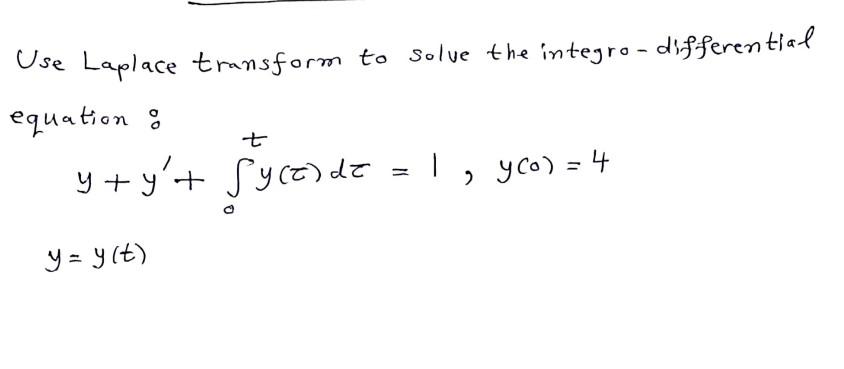 Use Laplace transform to solve the integro-differential
equation :
y + y' + ∫₀ᵗ y(τ) dτ = 1 , y(0) = 4
y = y(t)